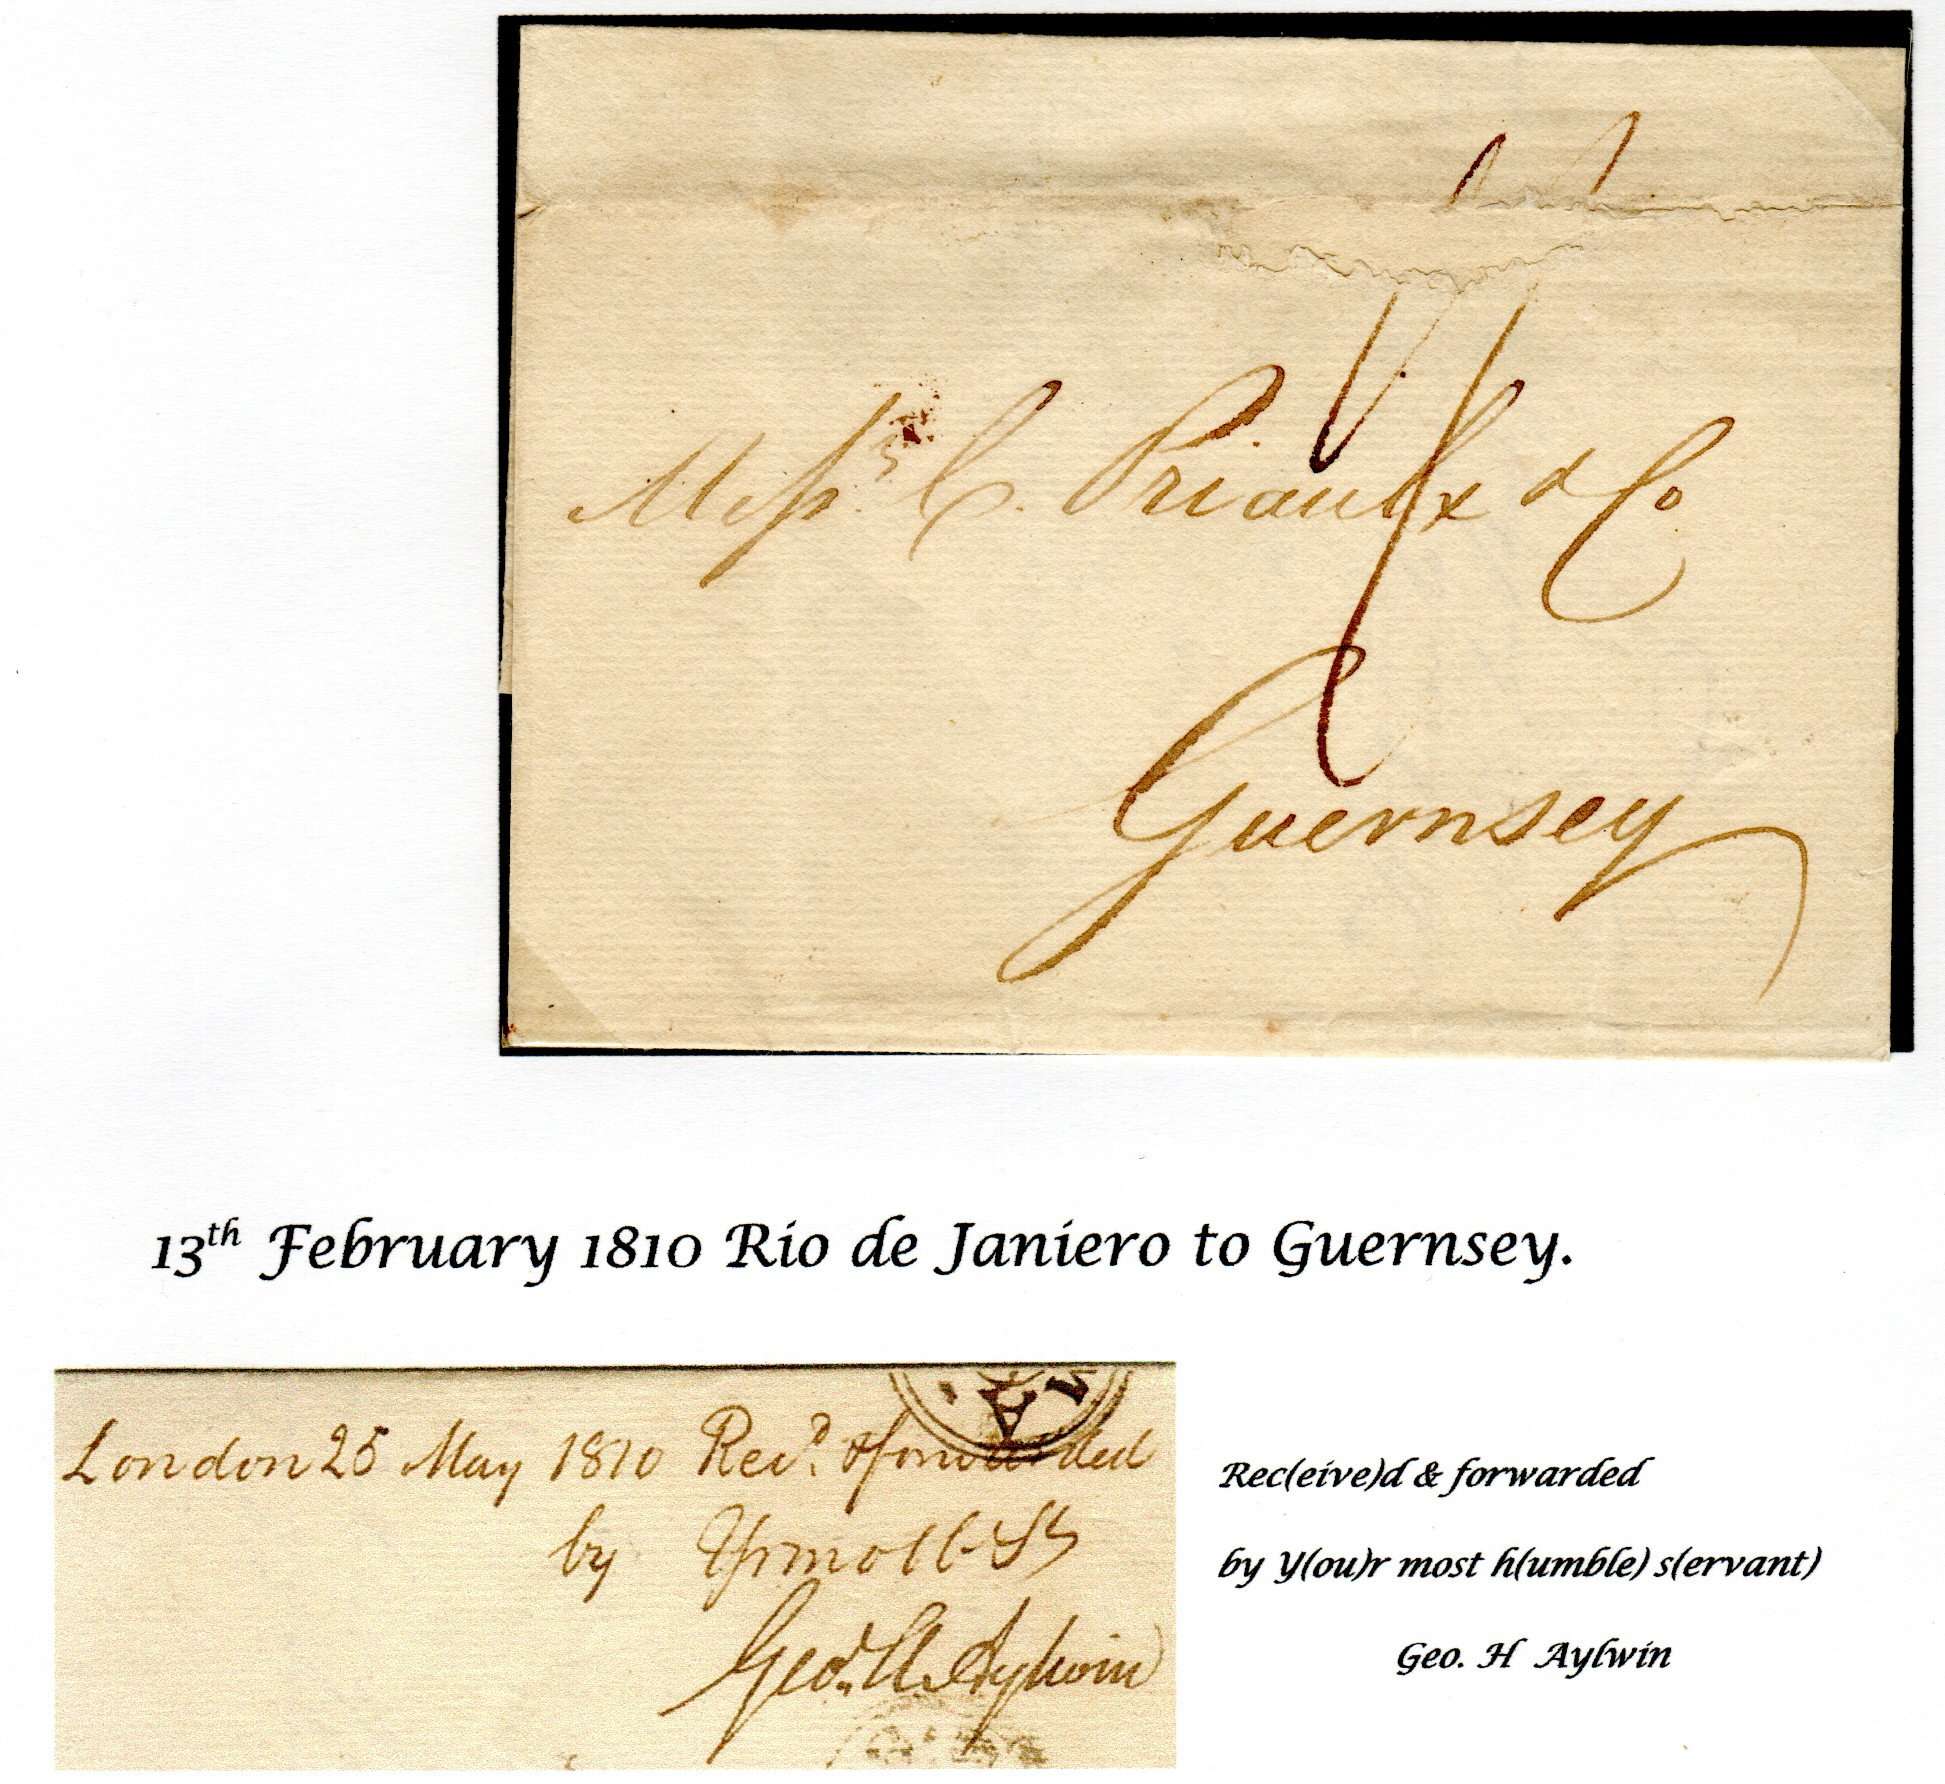 Messrs C. Priaulx & Co
Guernsey
13th February 1810 Rio de Janiero to Guernsey.
London 25 May 1810 Recd. & forwarded
by Yr most h Ss
Geo. H. Aylwin
Rec(eive)d & forwarded
by Y(ou)r most h(umble) s(ervant)
Geo. H Aylwin